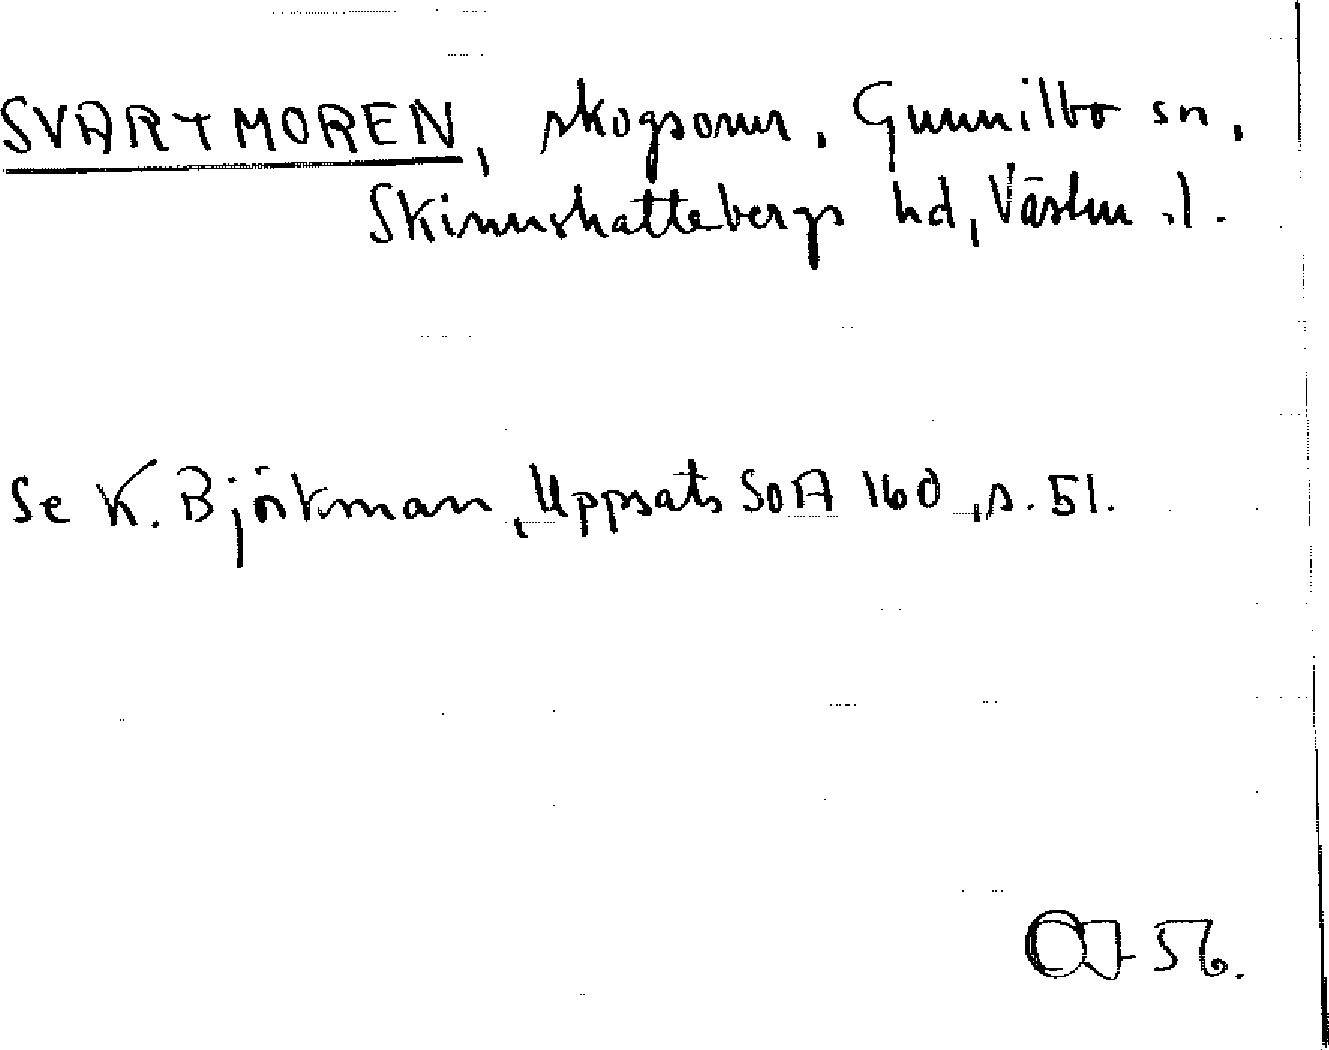 SVARTMOREN, skogsomr. Gunnilbo sn,
Skinnskattebergs hd, Västm. l.
Se K. Björkman, Uppsats SOA 160, s. 51.
OJ 56.